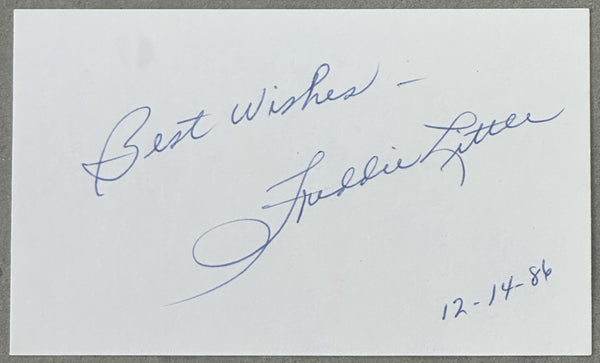 Best Wishes -
Freddie Little
12-14-86